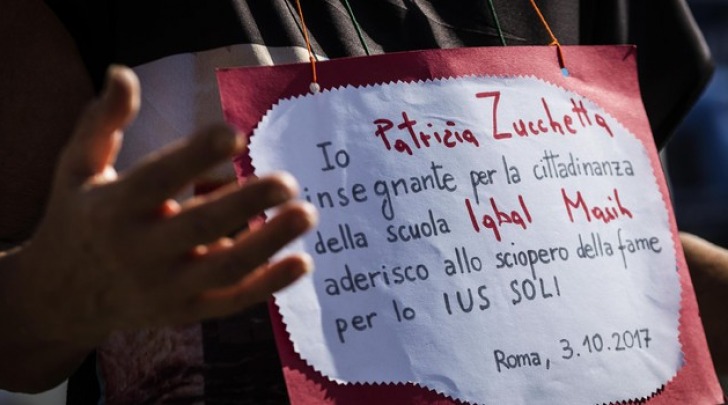 Io Patrizia Zucchetta
insegnante per la cittadinanza
della scuola Iqbal Masih
aderisco allo sciopero della fame
per lo IUS SOLI
Roma, 3.10.2017